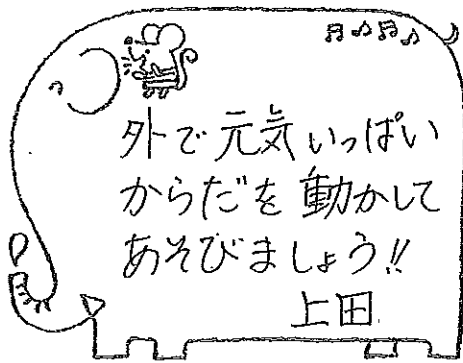 外で元気いっぱい
からだを動かして
あそびましょう!!
上田